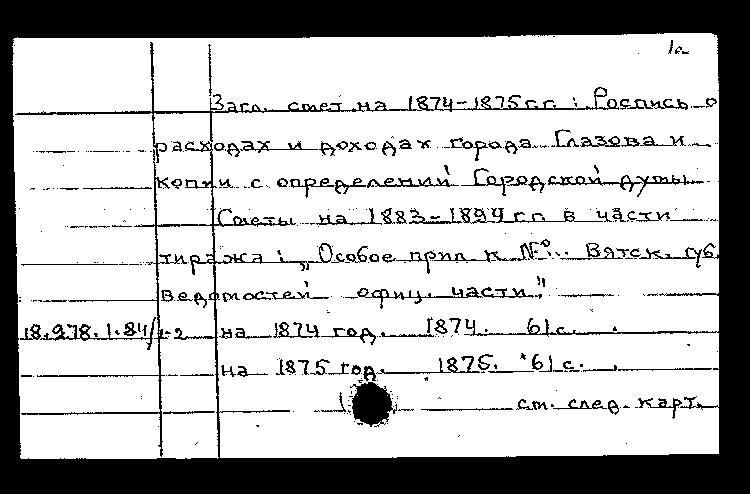 1а
Загл. смет на 1874-1875 г.г.: Роспись о
расходах и доходах города Глазова и
копии с определений Городской думы
Сметы на 1883-1894 г.г. в части
тиража: „Особое прил. к №.. Вятск. губ.
ведомостей офиц. части."
18.278.1.84/1-2 на 1874 год. 1874. 61 с.
на 1875 год. 1875. 61 с.
см. след. карт.